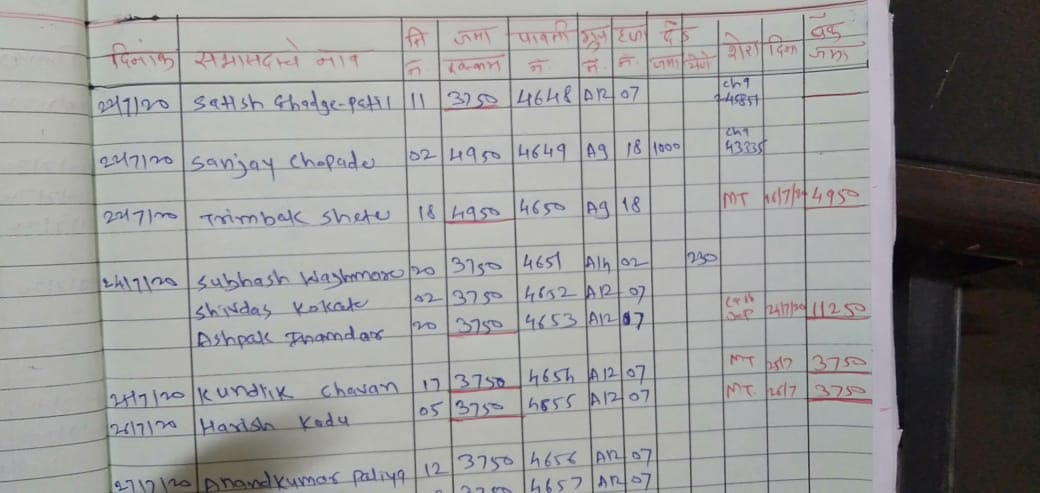 दिनांक सभासदाचे नाव नि नं. जमा रक्कम पावती नं. ग्रुप नं. हप्ता नं. दंड जमा येणे शेरा दिना बँक जमा
22/7/20 Satish Ghadge-Patil 11 3750 4648 A12 07 chq
22/7/20 Sanjay Chopade 02 4950 4649 A9 18 1000 chq 43335
22/7/20 Trimbak Shete 18 4950 4650 A9 18 MT 16/7/20 4950
24/7/20 Subhash Waghmare 20 3750 4651 A14 02 230
Shivdas Kokate 02 3750 4652 A12 07
Ashpak Inamdar 20 3750 4653 A12 07 Cash Dep 24/7/20 11250
25/7/20 Kundlik Chavan 17 3750 4654 A12 07 MT 25/7 3750
26/7/20 Harish Kadu 05 3750 4655 A12 07 MT. 26/7 3750
27/7/20 Anandkumar Paliya 12 3750 4656 A12 07
3750 4657 A12 07